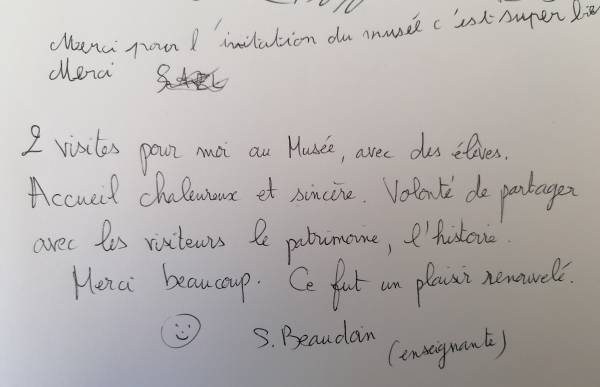 Merci pour l'invitation du musée c'est super bien
Merci
2 visites pour moi au Musée, avec des élèves.
Accueil chaleureux et sincère. Volonté de partager
avec les visiteurs le patrimoine, l'histoire.
Merci beaucoup. Ce fut un plaisir renouvelé.
S. Beaudoin (enseignante)